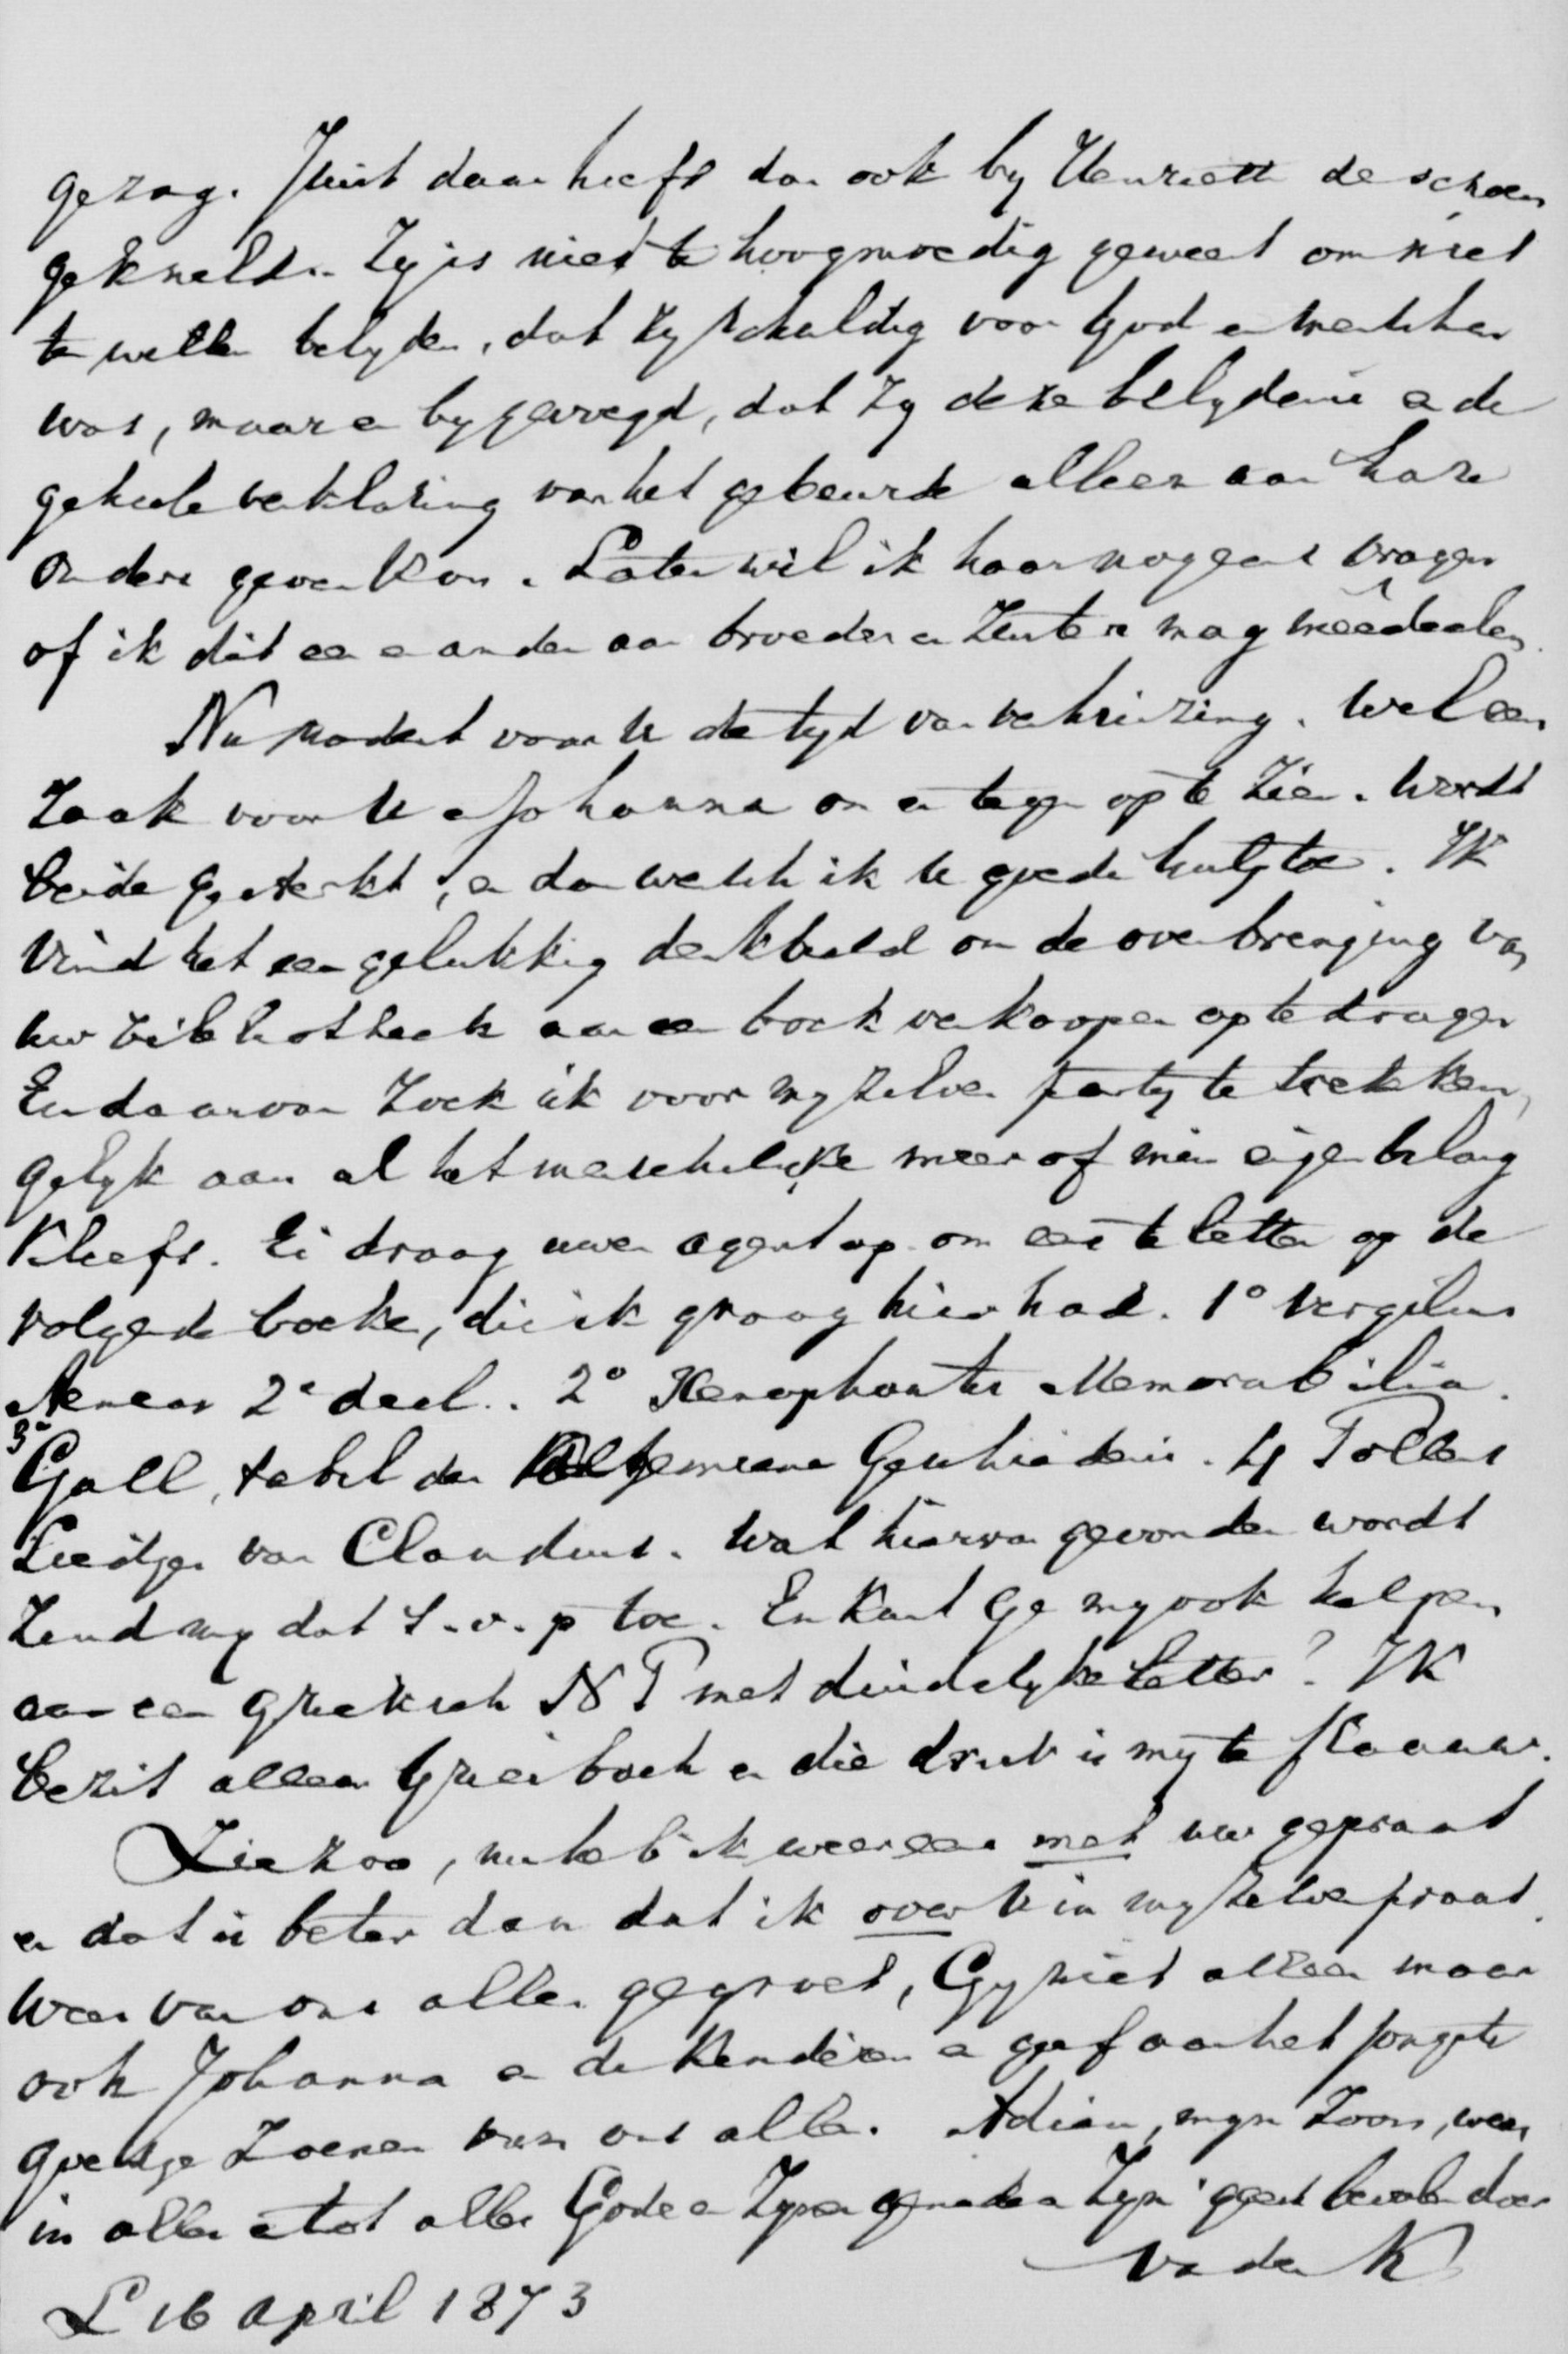 gezag. Juist daar heeft dan ook by Henriette de schoen
gekneld. Zy is niet te hoogmoedig geweest om niet
te willen belyden, dat zy schuldig voor God en menschen
was, maar er bygevoegd, dat zy deze belydenis en de
geheele verklaring van het gebeurde alleen aan hare
ouders geven kon. Later wil ik haar nog eens vragen
of ik dit een en ander aan broeders en zusters mag meêdeelen.
Nu nadert voor U de tyd van verhuizing. Wel een
zaak voor U en Johanna om er tegen op te zien. Wordt
beide gesterkt, en dan wensch ik U goede hulp toe. Ik
vind het een gelukkig denkbeeld om de overbrenging van
uw bibliotheek aan een boekverkooper op te dragen
En daarvan zoek ik voor myzelven party te trekken,
gelyk aan al het menschelyke meer of min eigenbelang
kleeft. Ei draag uwen agent op om eens te letten op de
volgende boeken, die ik graag hier had. 1° Vergilius
Aeneas 2e deel. 2° Xenophontis Memorabilia.
3° Gall, tabel der Algemeene Geschiedenis. 4 Tollens
Liedjes van Claudius. Wat hiervan gevonden wordt
zend my dat s.v.p toe. En kunt Ge my ook helpen
aan een grieksch N T met duidelyke letter? Ik
bezit alleen Griesbach en die druk is my te flaauw.
Zie zoo, nu heb ik weer eens met uw gepraat
en dat is beter dan dat ik over U in myzelven praat.
Wees van ons allen gegroet, Gy niet alleen maar
ook Johanna en de kinderen en geef aan het jongste
goedige zoenen van ons allen. Adieu, myn Zoon, wees
in alles en tot alles Gode en Zyner genade en Zyn geest bevolen door
Vader K
L 16 April 1873